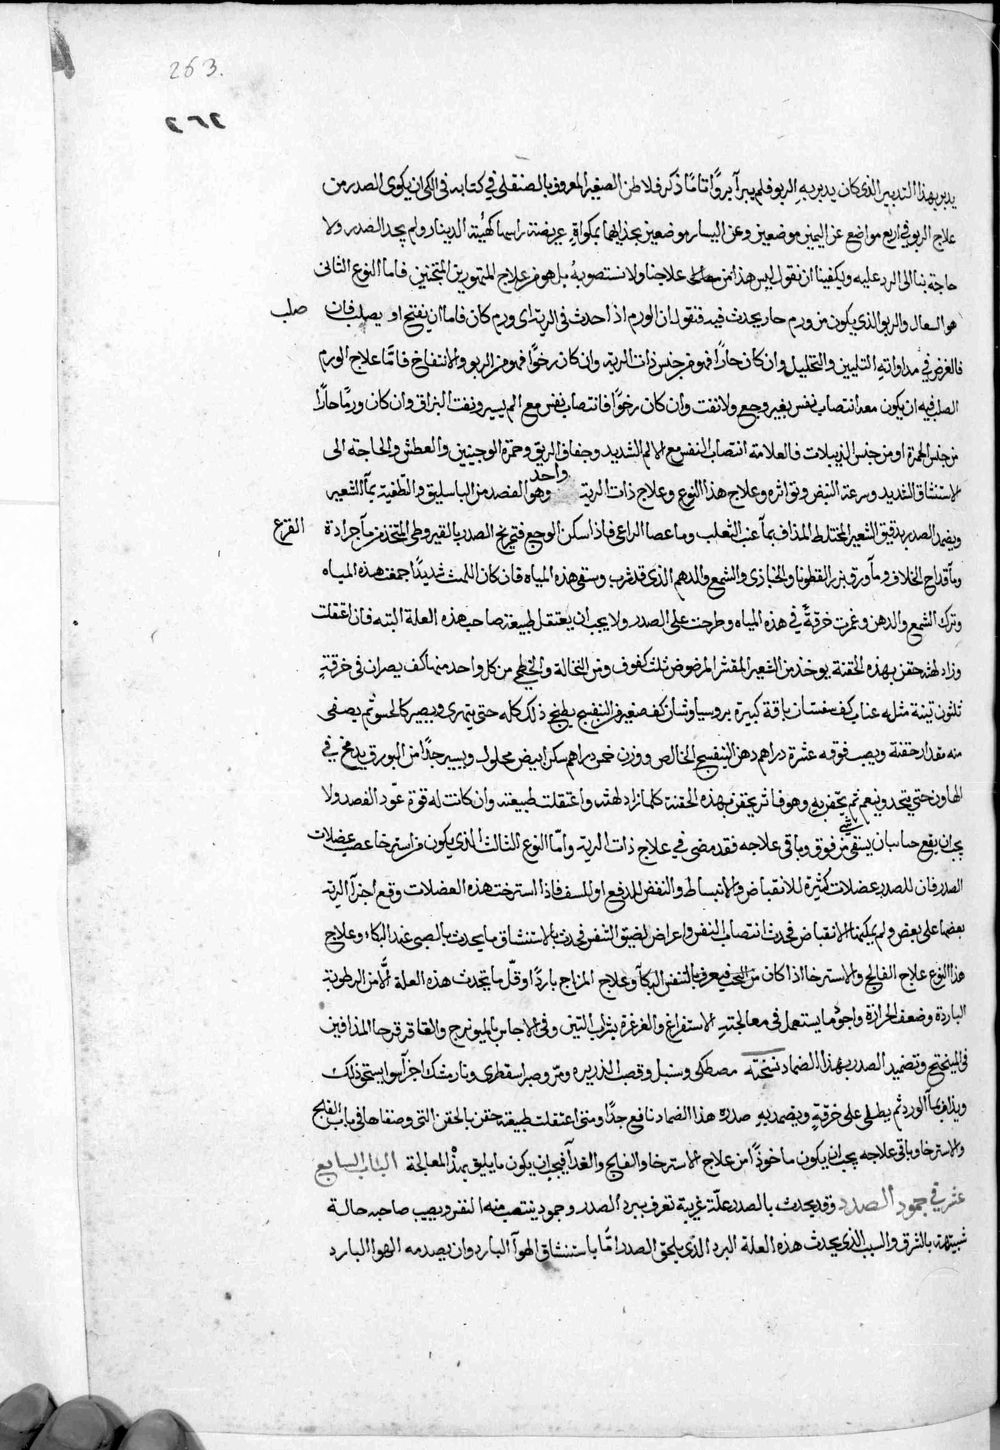 263.
٢٦٢
يدبر بهذا التدبير الذي كان يدبر به الربو فلم يبرأ بروًا تامًا ذكر فلاطن الصغير المعروف بالصنقلي في كتابه في الكي ان يكوى الصدر من
علاج الربو في اربع مواضع عن اليمين موضعين وعن اليسار موضعين بحذايهما بمكواة عريضة راسها كهيئة الدينار ولم يحد الصدر ولا
حاجة بنا الى الرد عليه ويكفينا ان نقول ليس هذا من علاجنا ولا نستصوبه بل هو من علاج المتهورين فاما النوع الثاني
هو السعال والربو الذي يكون من ورم حار يحدث فيه فنقول ان الورم اذا حدث في الرية اى ورم كان فاما ان يفتح او يصلب فان صلب
فالغرض في مداواته التليين والتحليل وان كان حارًا فهو من جنس ذات الرية وان كان رخوًا فهو من الربو والانتفاخ فامّا علاج الورم
الصلب فيه ان يكون معه انتصاب نفس بغير وجع ولا نفث وان كان رخوًا فانتصاب نفس مع الم يسير ونفث البزاق وان كان ورمًا حارًا
من جنس الحمرة او من جنس الدبيلات فالعلامة انتصاب النفس مع الالم الشديد وجفاف الريق وحمرة الوجنتين والعطش والحاجة الى
الاستنشاق الشديد وسرعة النبض وتواتره وعلاج هذا النوع وعلاج ذات الرية واحد وهو الفصد من الباسليق والتطفية بمآ الشعير
ويضمد الصدر بدقيق الشعير المختلط المذاف بمآ عنب الثعلب وما عصا الراعي فاذا سكن الوجع فتمريخ الصدر بالقيروطي المتخذ من مآ جرادة القرع
ومآ قداح الخلاف ومآ ورق بزر القطونا والخبازى والشمع والدهن الذي قد ضرب وسقي هذه المياه فان كان اللهث شديدًا جمعت هذه المياه
وترك الشمع والدهن وغمرت خرقةٌ في هذه المياه وطرحت على الصدر ولا يجب ان يعتقل طبيعة صاحب هذه العلة البتة فان اعتقلت
وزاد لهثه حقن بهذه الحقنة يوخذ من الشعير المقشر المرضوض ثلث كفوف ومن النخالة والخطمي من كل واحد منهما كف يصران في خرقةٍ
ثلثون تينة مثله عناب كف سفستان باقة كبيرة برسياوشان كف صغير من البنفسج يطبخ ذلك كله حتى يتهرى ويصير كالحسو ثم يصفى
منه مقدار حقنة ويصب فوقه عشرة دراهم دهن البنفسج الخالص ووزن خمس دراهم سكر ابيض محلول ويسير جدًا من البورق يدمخ في
الهاون حتى يتحد وينعم ثم يحقن به وهو فاتر يحقن بهذه الحقنة كلما زاد لهثه واعتقلت طبيعته وان كانت له قوة عوّد الفصد ولا
يجب ان يقع حاسبان يسقى شي من فوق وباقي علاجه فقد مضى في علاج ذات الرية وامّا النوع الثالث الذي يكون من استرخا عصب عضلات
الصدر فان للصدر عضلات كثيرة للانقباض والانبساط والنفض للدفع او للسف فاذا استرخت هذه العضلات وقع اجزآ الرية
بعضها على بعض ولم يمكنها الانقباض فحدث انتصاب النفس واعراض لضيق النفس فحدث بالاستنشاق ما يحدث بالصبي عند البكاء وعلاج
هذا النوع علاج الفالج والاسترخا اذا كان فيعرف بالتنفس البكآ وعلاج المزاج باردًا وقلّ ما يتحدث هذه العلة الّا من الرطوبة
الباردة وضعف الحرارة واجود ما يستعمل في معالجته الاستفراغ والغرغرة بشراب التين وفي الاجاس بالميويزج والعاقر قرحا المذافين
في الميبختج وتضميد الصدر بهذا الضماد نسخته مصطكى وسنبل وقصب الذريره ومرّ وصبر اسقطرى ونارمشك اجزآ سوا يسحق ذلك
ويذاف بمآ الورد ثم يطلى على خرقةٍ ويضمد به صدره هذا الضماد نافع جدًا ومتى اعتقلت طبيعته حقن بالحقن التي وصفناها في باب الفلج
والاسترخا وباقي علاجه يجب ان يكون ماخوذًا من علاج الاسترخا والفلج والغدآ فيجب ان يكون ما يليق بهذه المعالجة الباب السابع
عشر في جمود الصدر وقد يحدث بالصدر علّة غريبة تعرف ببرد الصدر وجمود ينتصب منه النفس ويصيب صاحبه حالة
شبيهة بالشرق والسبب الذي يحدث هذه العلة البرد الذي يلحق الصدر امّا باستنشاق الهوآ البارد وان يصدمه الهوا البارد